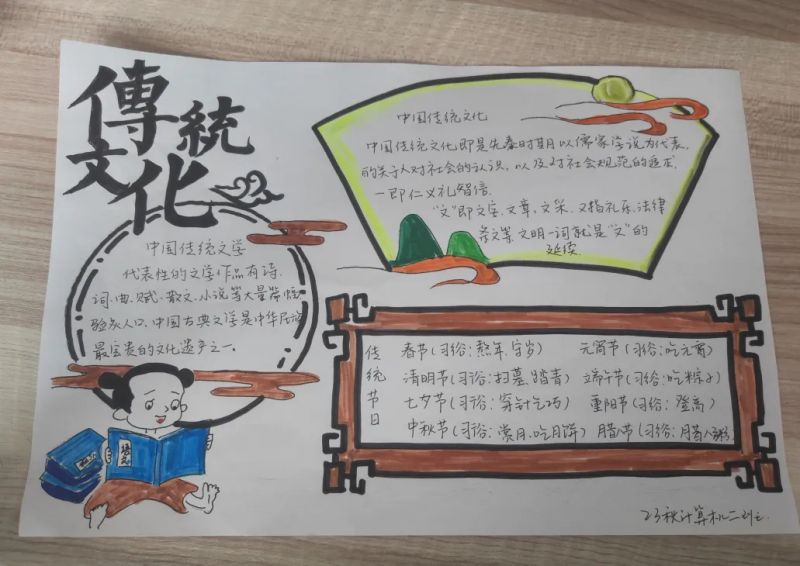 傳統文化
中国传统文学
代表性的文学作品有诗.
词.曲.赋.散文.小说等大量
脍炙人口.中国古典文学是中华民族
最宝贵的文化遗产之一.
中国传统文化
中国传统文化即是先秦时期以儒家学说为代表,
的关于人对社会的认识,以及对社会规范的追求,
一即仁义礼智信.
"文"即文字.文章.文采.又指礼乐.法律
条文等.文明一词就是"文"的
延续.
传统节日
春节(习俗:熬年.守岁) 元宵节(习俗:吃元宵)
清明节(习俗:扫墓.踏青) 端午节(习俗:吃粽子)
七夕节(习俗:穿针乞巧) 重阳节(习俗:登高)
中秋节(习俗:赏月.吃月饼) 腊节(习俗:腊
23秋计算机二班